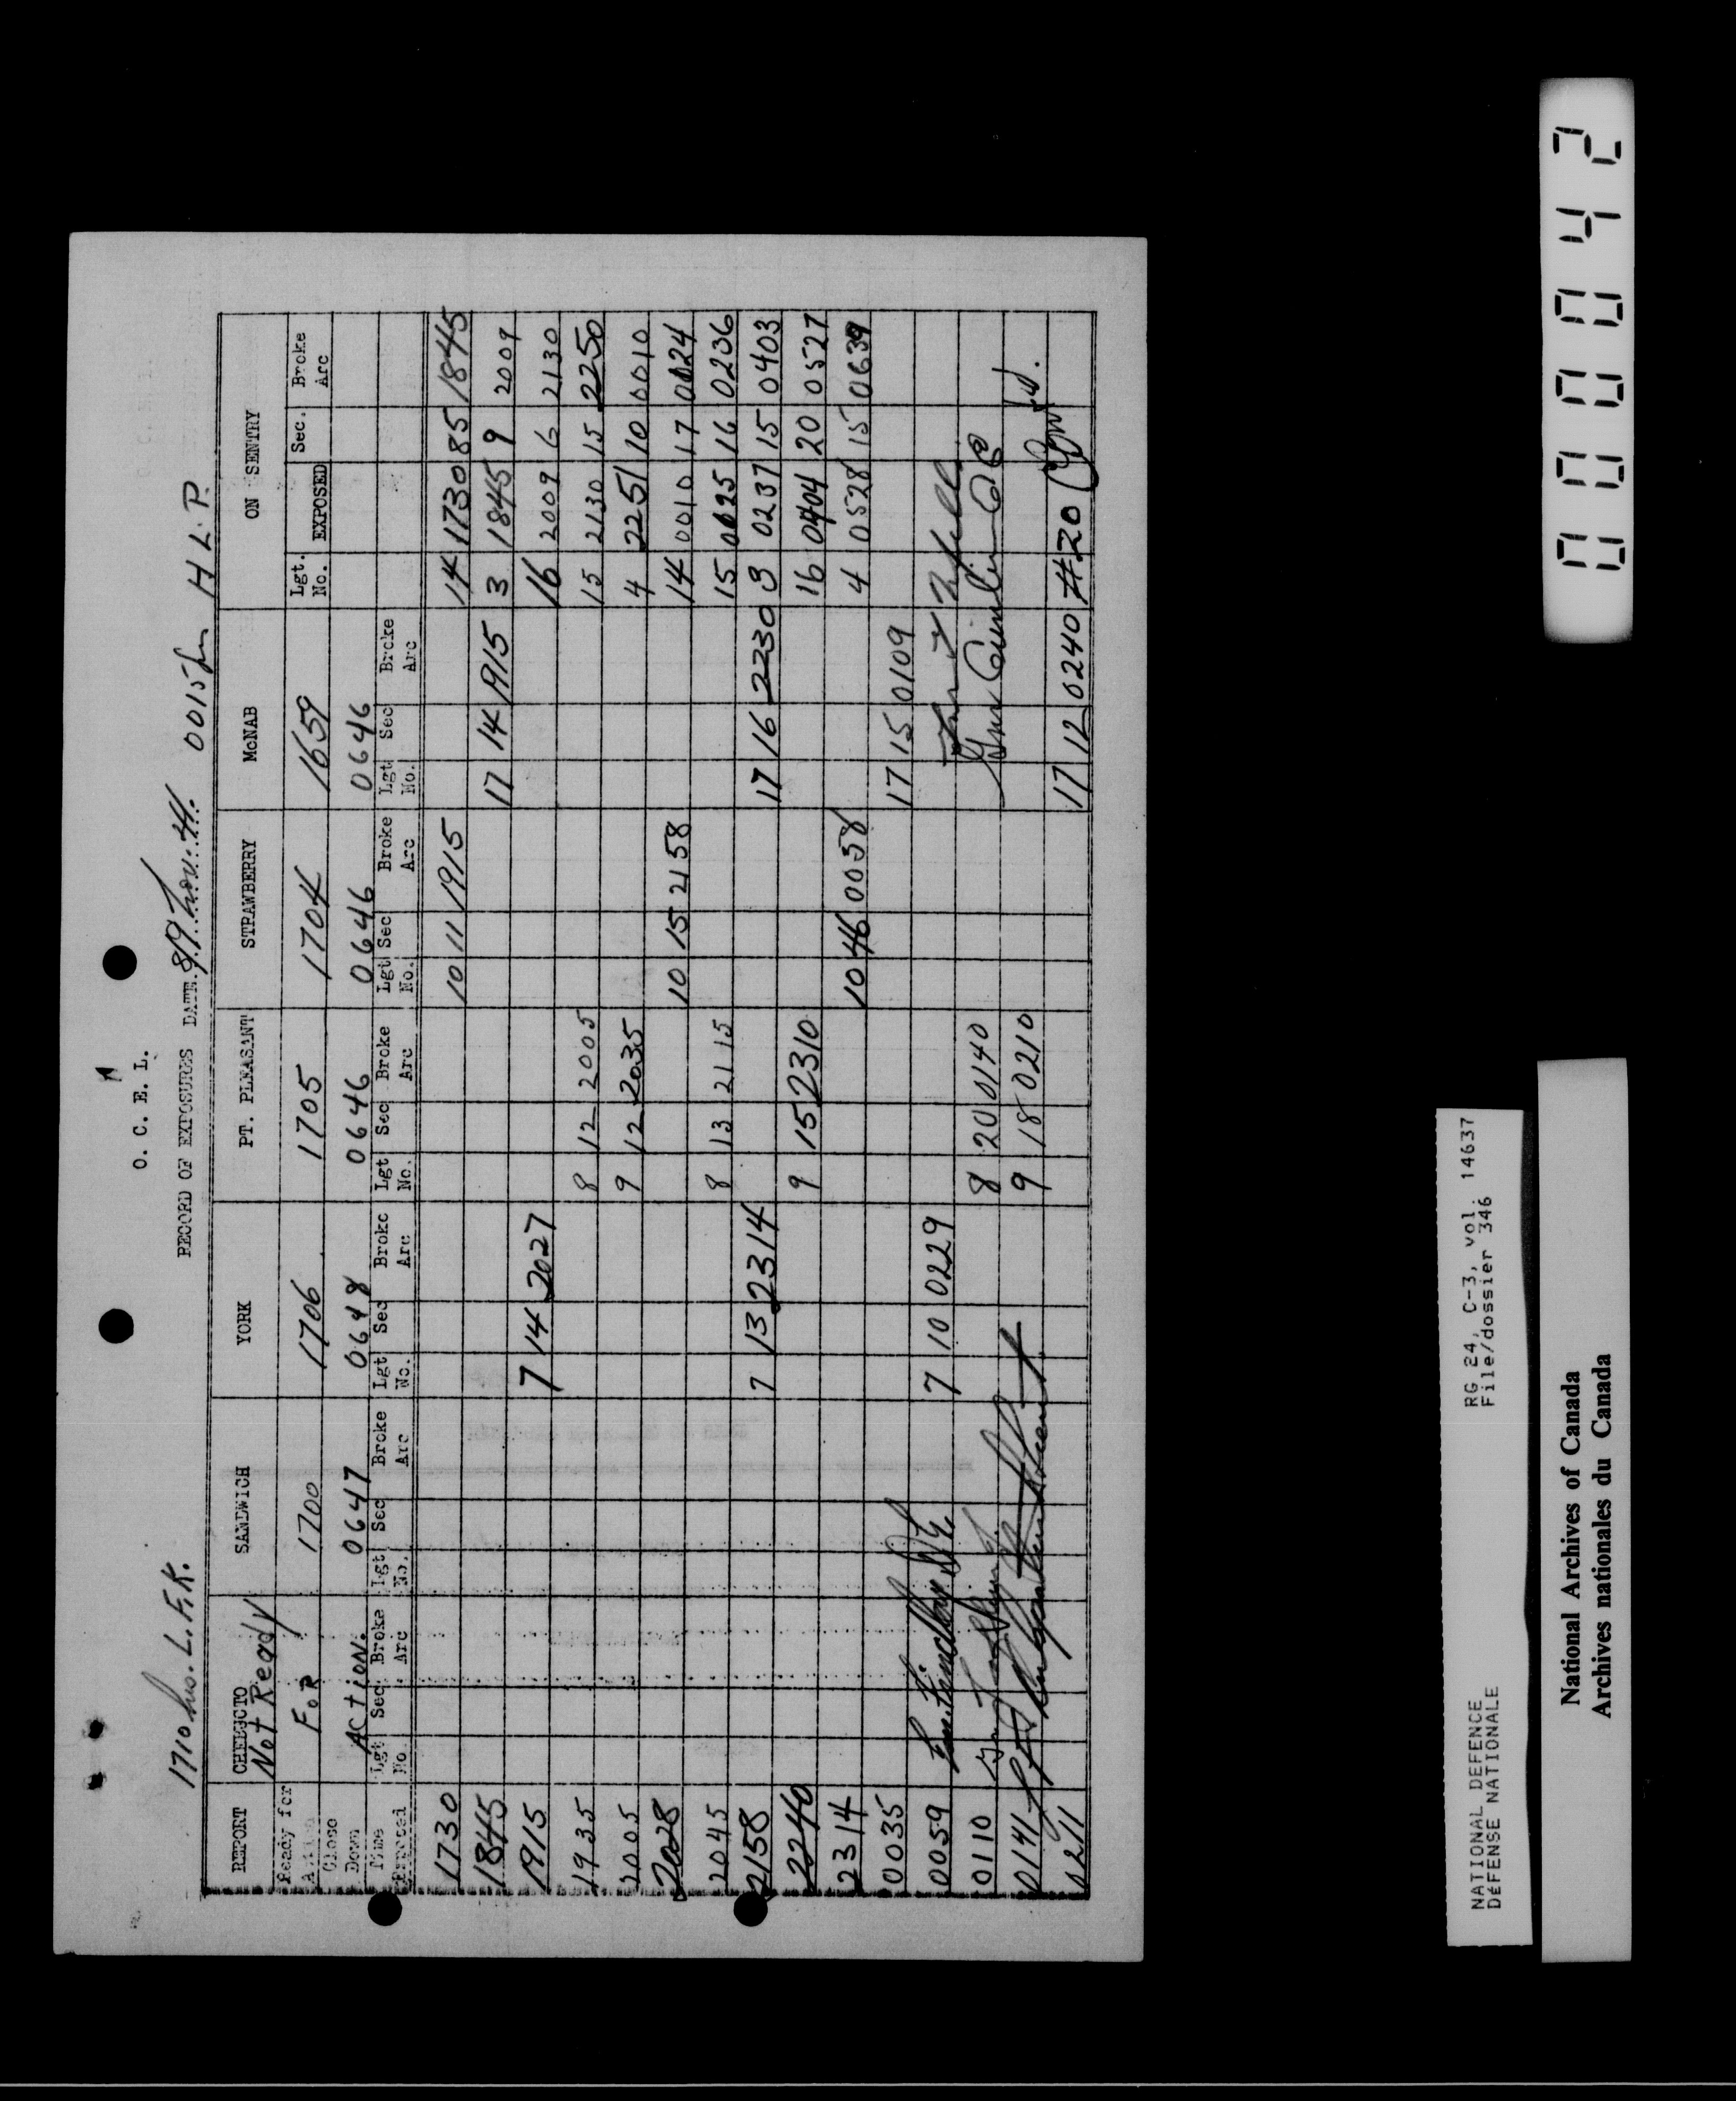 O. C. E. L.
1710 hrs. L.F.K. RECORD OF EXPOSURES DATE 8/9 Nov: 44. 0015 H.L.P.
REPORT CHEBUCTO SANDWICH YORK PT. PLEASANT STRAWBERRY McNAB ON SENTRY
Ready for Action Not Ready For 1700 1706 1705 1704 1659 Lgt. No. EXPOSED Sec. Broke Arc
Close Down Action. 0647 0648 0646 0646 0646
Time Exposed Lgt No. Sec Broke Arc Lgt No. Sec Broke Arc Lgt No. Sec Broke Arc Lgt No. Sec Broke Arc Lgt No. Sec Broke Arc Lgt No. Sec Broke Arc
1730 10 11 1915 14 1730 85 1845
1845 17 14 1915 3 1845 9 2009
1915 7 14 2027 16 2009 6 2130
1935 8 12 2005 15 2130 15 2250
2005 9 12 2035 4 2251 10 0010
2028 10 15 2158 14 0010 17 0024
2045 8 13 2115 15 0025 16 0236
2158 7 13 2314 17 16 2230 3 0237 15 0403
2240 9 15 2310 16 0404 20 0527
2314 10 46 0058 4 0528 15 0639
0035 17 15 0109
0059 7 10 0229
0110 8 20 0140
0141 9 18 0210
0211 17 12 0240 #20
NATIONAL DEFENCE RG 24, C-3, vol. 14637
DÉFENSE NATIONALE File/dossier 346
National Archives of Canada
Archives nationales du Canada
000042